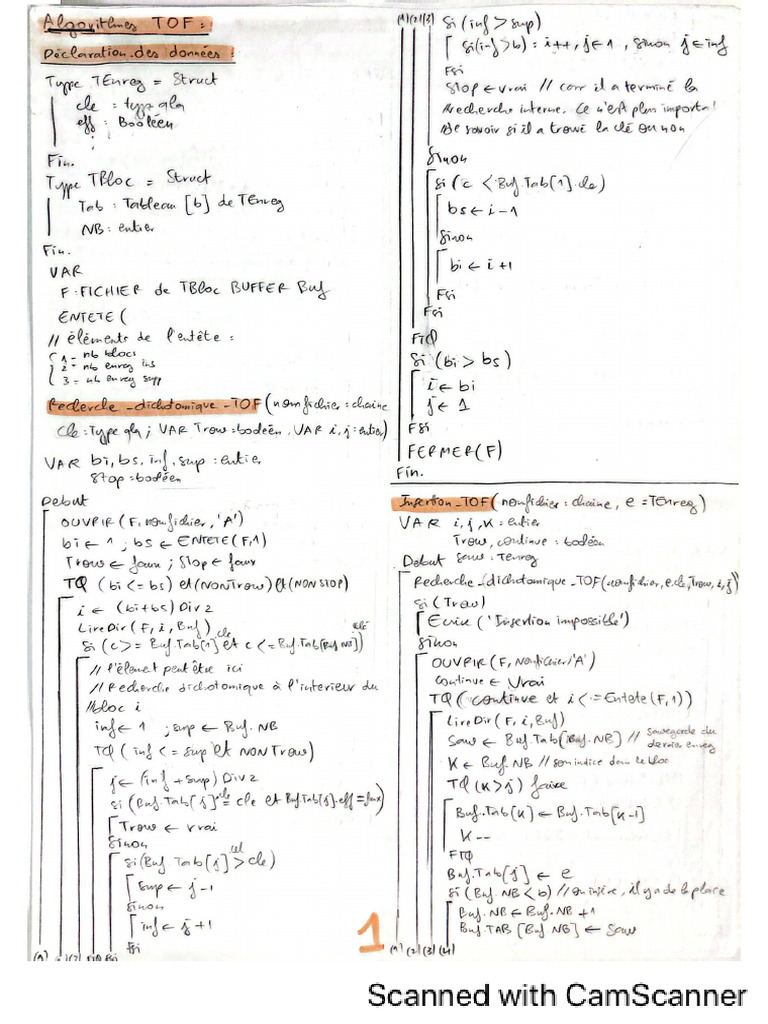 Algorithmes TOF :
Déclaration des données :
Type TEnreg = Struct
cle : typeqlq
eff : Booléen
;
Fin.
Type TBloc = Struct
Tab : Tableau [b] de TEnreg
NB : entier
Fin.
VAR
F : FICHIER de TBloc BUFFER Buf
ENTETE (
// éléments de l'entête :
1 - nb blocs
2 - nb enreg ins
3 - nb enreg supp
Recherche_dichotomique_TOF (nomfichier : chaine
Cle : Typeqlq ; VAR Trouv : booléen, VAR i, j : entier)
VAR bi, bs, inf, sup : entier,
Stop : booléen
Debut
OUVRIR (F, nomfichier, 'A')
bi ← 1 ; bs ← ENTETE (F,1)
Trouv ← faux ; Stop ← faux
TQ (bi <= bs) et (NON Trouv) et (NON STOP)
i ← (bi+bs) Div 2
LireDir (F, i, Buf)
Si (c >= Buf.Tab[1].cle et c <= Buf.Tab[Buf.NB].clé)
// l'élément peut être ici
// Recherche dichotomique à l'interieur du
//bloc i
inf ← 1 ; sup ← Buf.NB
TQ (inf <= sup et NON Trouv)
j ← (inf + sup) Div 2
Si (Buf.Tab[j].cle = cle et Buf.Tab[j].eff = faux)
Trouv ← vrai
Sinon
Si (Buf.Tab[j].cle > cle)
sup ← j-1
Sinon
inf ← j+1
Fsi
FTQ Fsi
(1) (2) (3) Si (inf > sup)
Si (inf > b) : i++, j ← 1, Sinon j ← inf
Fsi
Stop ← vrai // car il a terminé la
recherche interne. Ce n'est plus importa
de savoir si il a trouvé la clé ou non
Sinon
Si (c < Buf.Tab[1].cle)
bs ← i-1
Sinon
bi ← i+1
Fsi
Fsi
FTQ
Si (bi > bs)
i ← bi
j ← 1
Fsi
FERMER (F)
Fin.
Insertion_TOF (nomfichier : chaine, e : TEnreg)
VAR i, j, K : entier
Trouv, continue : booléen
Debut Sauv : TEnreg
Recherche_dichotomique_TOF (nomfichier, e.cle, Trouv, i, j)
Si (Trouv)
Ecrire ('Insertion impossible')
Sinon
OUVRIR (F, Nomfichier, 'A')
Continue ← Vrai
TQ (continue et i <= Entete (F,1))
LireDir (F, i, Buf)
Sauv ← Buf.Tab[Buf.NB] // Sauvegarde du
dernier enreg
K ← Buf.NB // son indice dans le bloc
TQ (K > j) faire
Buf.Tab[K] ← Buf.Tab[K-1]
K--
FTQ
Buf.Tab[j] ← e
Si (Buf.NB < b) // on insère, il y a de la place
Buf.NB ← Buf.NB + 1
Buf.TAB [Buf NB] ← Sauv
(1) (2) (3) (4)
1
Scanned with CamScanner